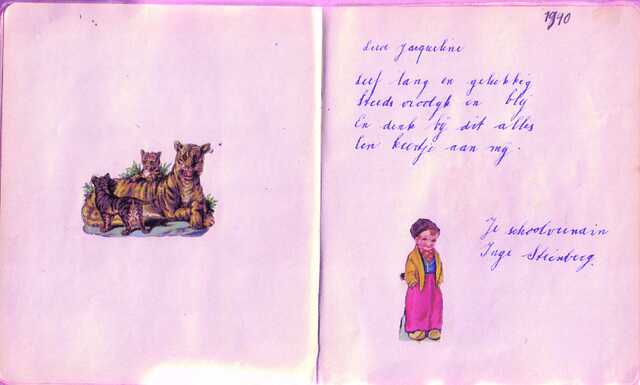 1940
Lieve Jacqueline
Leef lang en gelukkig
Steeds vroolyk en bly
En denk bij dit alles
Een keertje aan my.
Je schoolvriendin
Inge Steinberg.